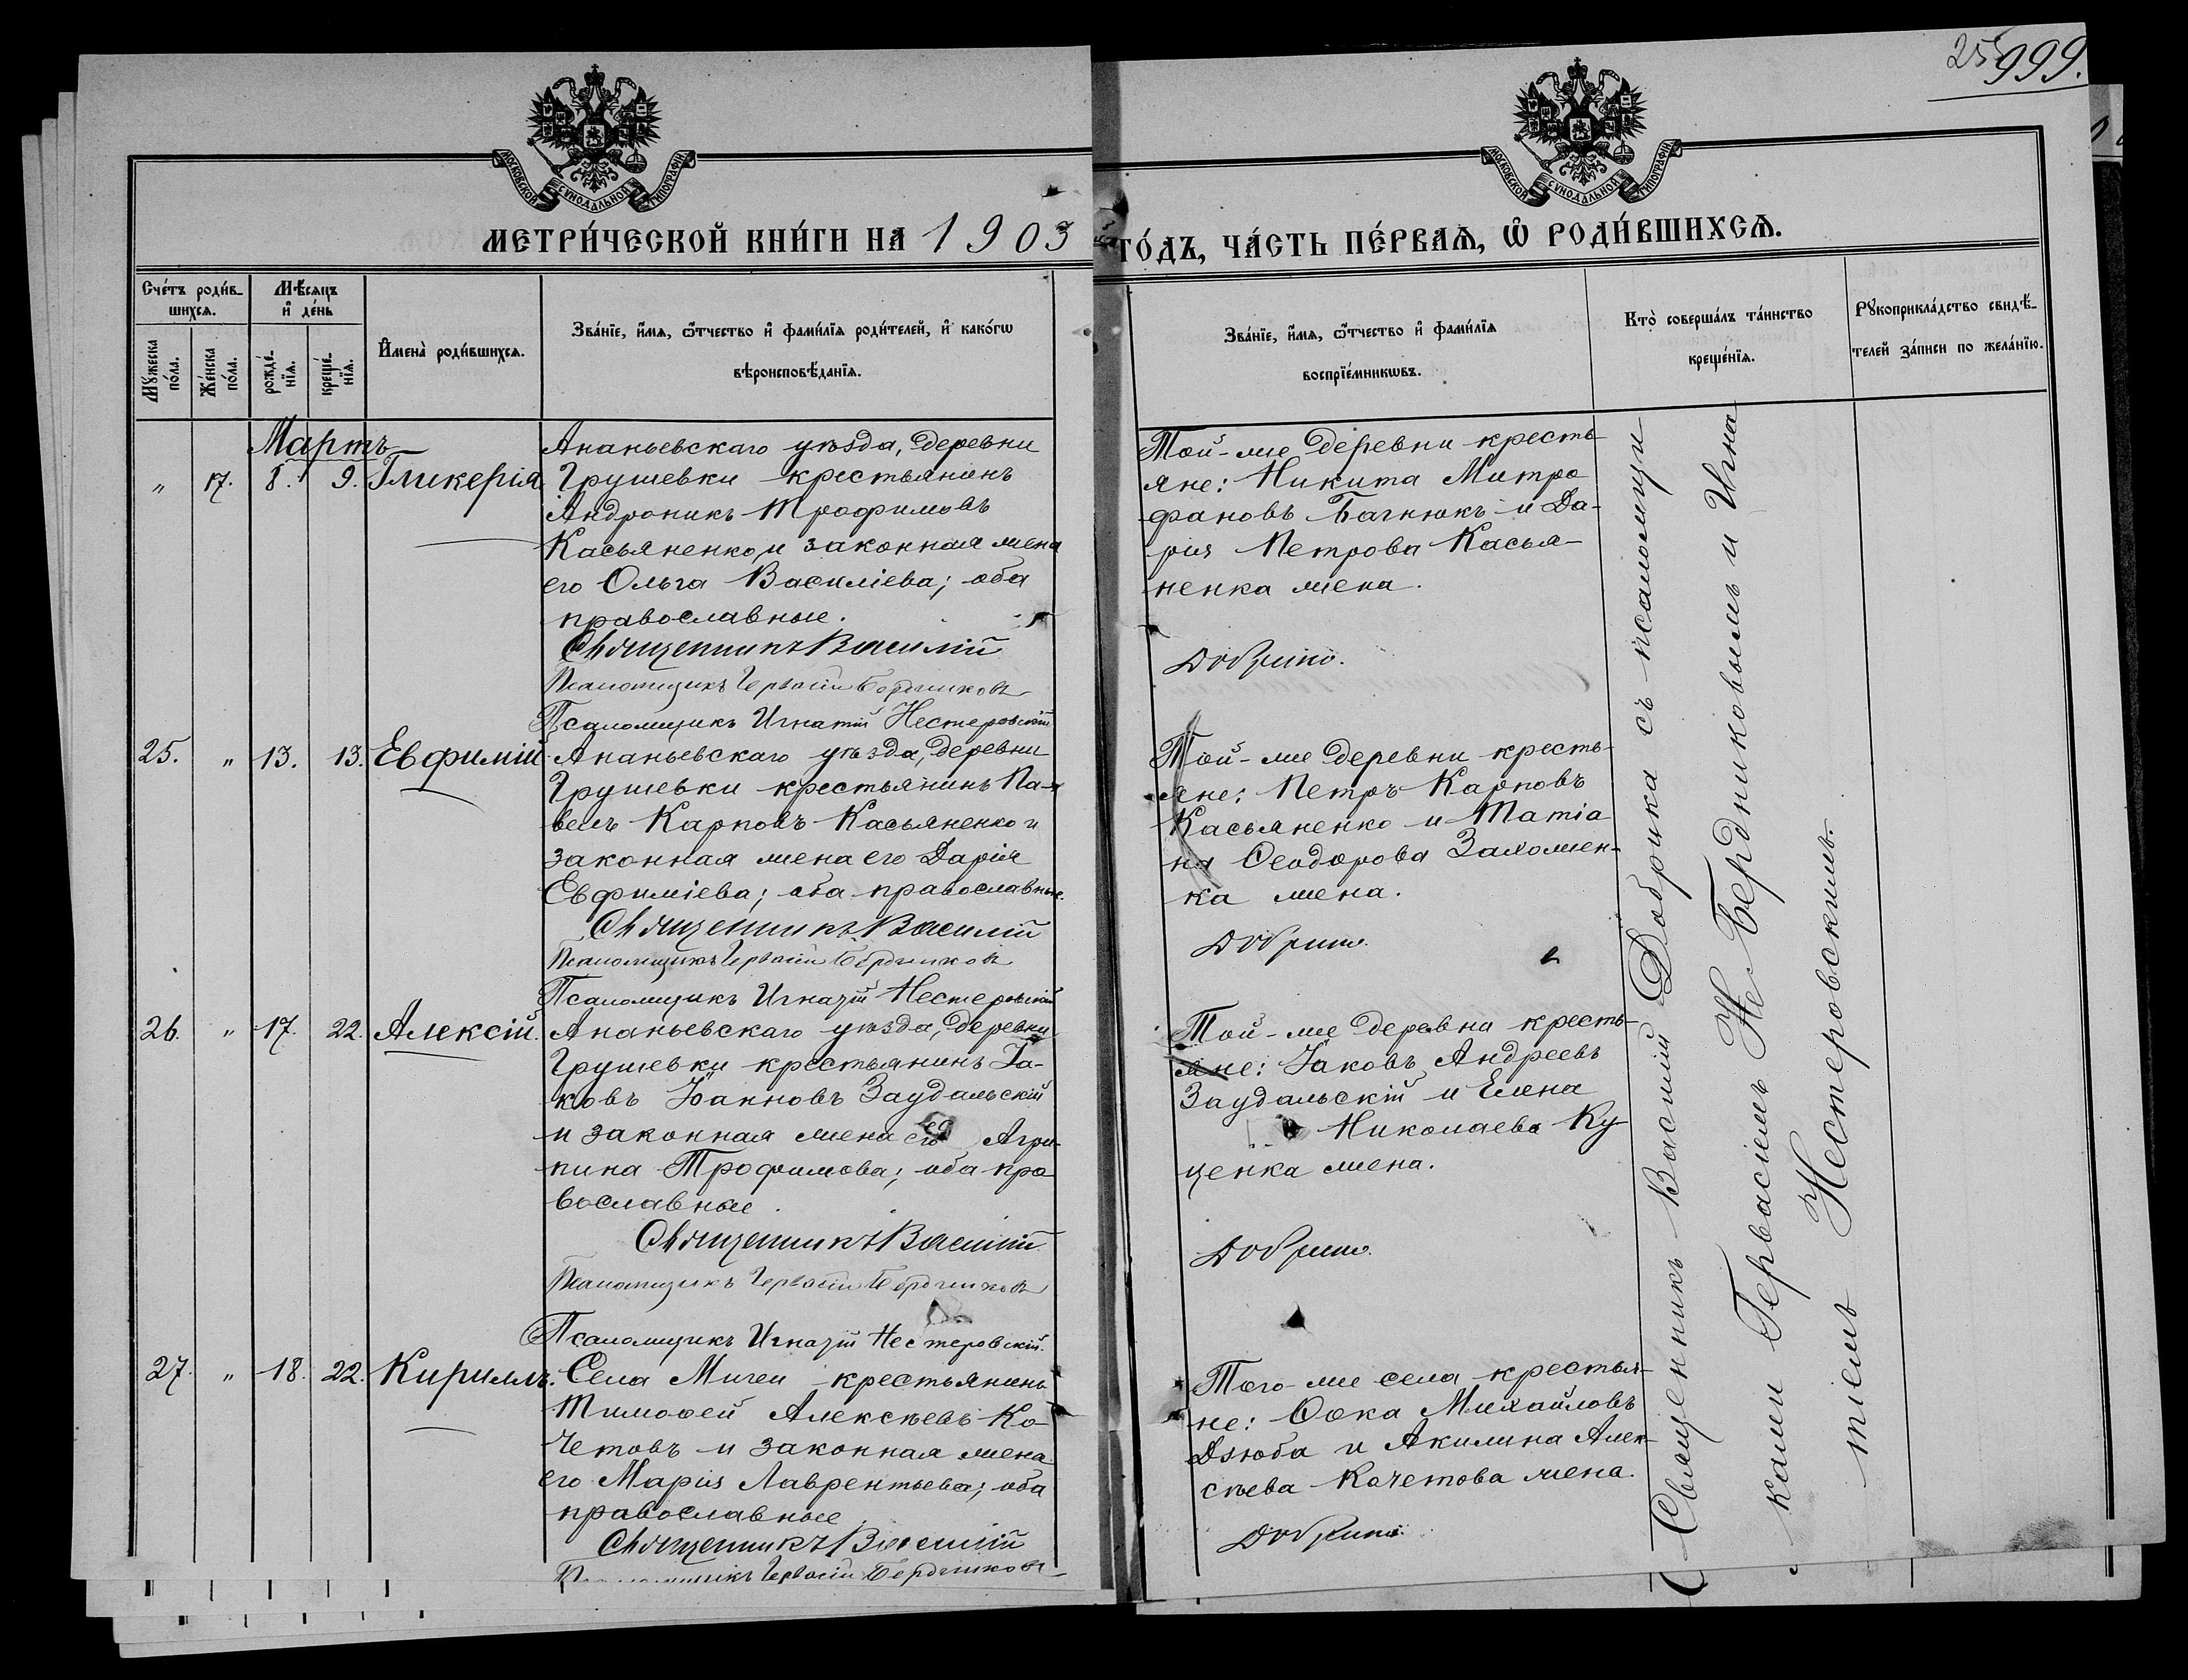 255 999.
МОСКОВСКОЙ СѴНОДАЛЬНОЙ ТИПОГРАФІИ
МОСКОВСКОЙ СѴНОДАЛЬНОЙ ТИПОГРАФІИ
МЕТРИ́ЧЕСКОЙ КНИ́ГИ НА 1903
ГО́ДЪ, ЧА́СТЬ ПЕ́РВАѦ, Ѡ҆ РОДИ́ВШИХСѦ.
Сче́тъ роди́в-
шихсѧ.
Мѣ́сѧцъ
и҆ де́нь
Мꙋ́жеска
по́ла.
Же́нска
по́ла.
рожде́-
нїѧ.
креще́-
нїѧ.
И҆мена̀ роди́вшихсѧ.
Зва́нїе, и҆́мѧ, ѻ҆́тчество и҆ фами́лїѧ роди́телей, и҆ како́гѡ
вѣроисповѣ́данїѧ.
Зва́нїе, и҆́мѧ, ѻ҆́тчество и҆ фами́лїѧ
воспрїе́мникѡвъ.
Кто̀ соверша́лъ та́инство
креще́нїѧ.
Рꙋкоприкла́дство свидѣ́-
телей за́писи по жела́нїю.
Мартъ
" 17. 8. 9. Гликерія
Ананьевскаго уѣзда, деревни
Грушевки крестьянинъ
Андроникъ Трофимовъ
Касьяненко, и законная жена
его Ольга Василіева; оба
православные.
Священникъ Василій
Псаломщикъ Гервасій Бердниковъ
Псаломщикъ Игнатій Нестеровскій
Той-же деревни кресть-
яне: Никита Митро
фановъ Багнюкъ и Да-
рія Петрова Касья-
ненка жена.
Добрика.
25. " 13. 13. Евфимій
Ананьевскаго уѣзда, деревни
Грушевки крестьянинъ Па-
велъ Карповъ Касьяненко и
законная жена его Дарія
Евфиміева; оба православные.
Священникъ Василій
Псаломщикъ Гервасій Бердниковъ
Псаломщикъ Игнатій Нестеровскій
Той-же деревни кресть-
яне: Петръ Карповъ
Касьяненко и Татіа
на Ѳеодорова Захожен-
ка жена.
Добрика.
26. " 17. 22. Алексій.
Ананьевскаго уѣзда, деревни
Грушевки крестьянинъ Іа-
ковъ Іоанновъ Заудальскій
и законная жена его Агри-
пина Трофимова; оба пра
вославные.
Священникъ Василій
Псаломщикъ Гервасій Бердниковъ
Псаломщикъ Игнатій Нестеровскій.
Той-же деревни кресть-
яне: Іаковъ Андреевъ
Заудальскій и Елена
Николаева Ку-
ценка жена.
Добрика.
27. " 18. 22. Кириллъ.
Села Мигеи крестьянинъ
Тимоѳей Алексѣевъ Ко-
четовъ и законная жена
его Марія Лаврентьева; оба
православные.
Священникъ Василій
Псаломщикъ Гервасій Бердниковъ
Того-же села крестья-
не: Ѳока Михайловъ
Дзюба и Акилина Алек-
сѣева Кочетова жена.
Добрика.
Священникъ Василій Добрика съ псаломщи
ками Гервасіемъ Не-Бердниковымъ и Игна
тіемъ Нестеровскимъ.